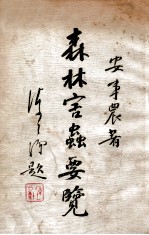 安事農著
森林害蟲要覽
題